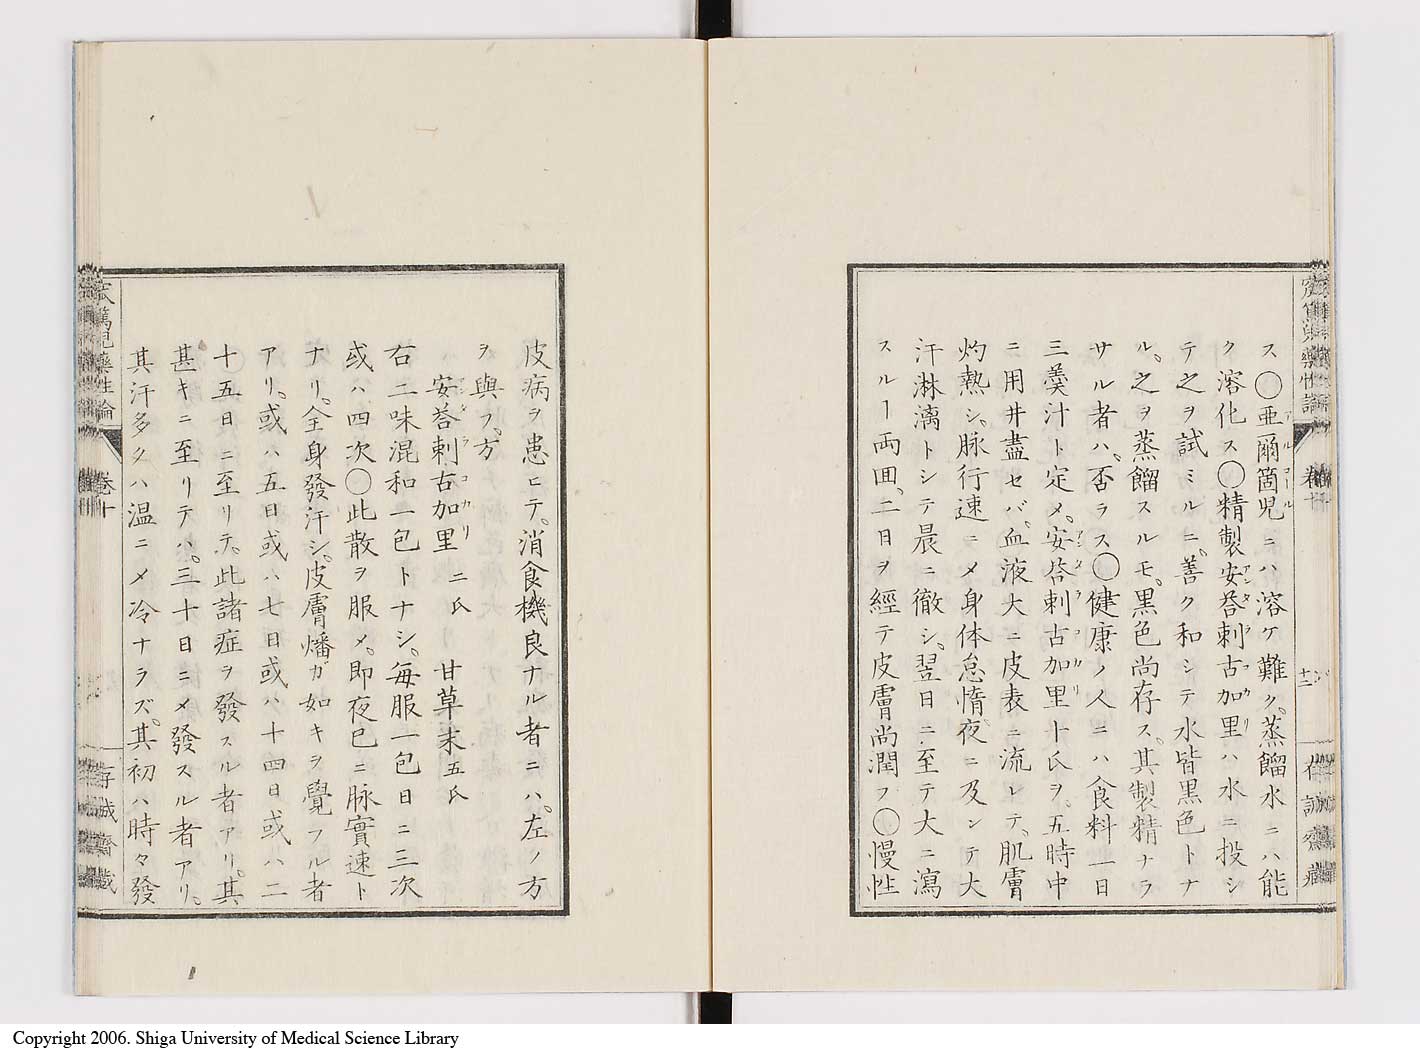 ス〇亜爾箇児ニハ溶ケ難ク。蒸餾水ニハ能
アルコール
ク溶化ス〇精製安荅剌古加里ハ水ニ投シ
アンタラコカリ
テ之ヲ試ミルニ。善ク和シテ水皆黒色トナ
ル。之ヲ蒸餾スルモ。黒色尚存ス。其製精ナラ
サル者ハ。否ラス〇健康ノ人ニハ食料一日
三羹汁ト定メ。安荅剌古加里卜氏ヲ。五時中
アンタラコカリ
ニ用井盡セバ。血液大ニ皮表ニ流レテ。肌膚
灼熱シ。脉行速ニメ身体怠惰。夜ニ及ンテ大
汗淋漓トシテ晨ニ徹シ。翌日ニ至テ大ニ瀉
スルー両囬。二日ヲ経テ皮膚尚潤フ〇慢性
皮病ヲ患ヒテ。消食機良ナル者ニハ。左ノ方
ヲ與フ。方
安荅剌古加里 二氏 甘草末 五氏
アンタラコカリ
右二味混和一包トナシ。毎服一包日ニ三次
或ハ四次〇此散ヲ服メ。即夜已ニ脉實速ト
ナリ。全身發汗シ。皮膚燔ガ如キヲ覺フル者
アリ。或ハ五日或ハ七日或ハ十四日或ハ二
十五日ニ至リテ。此諸症ヲ發スル者アリ。其
甚キニ至リテハ。三十日ニメ發スル者アリ。
其汗多クハ温ニメ冷ナラズ。其初ハ時々發
篤兒藥性論
卷十
存誠齋藏
Copyright 2006. Shiga University of Medical Science Library